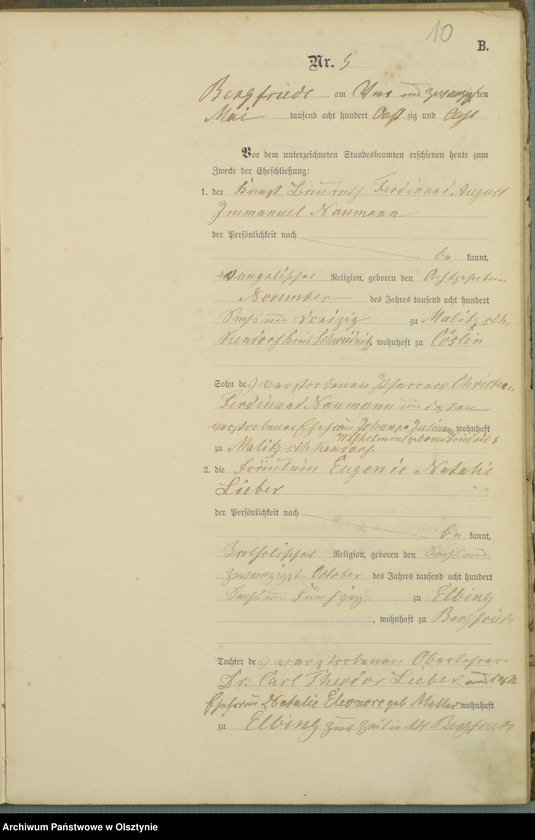 10
B.
Nr. 5
Bergfriede am Ein und zwanzigsten
Mai tausend acht hundert Acht zig und Acht
Vor dem unterzeichneten Standesbeamten erschienen heute zum
Zwecke der Eheschließung:
1. der Ferdinand August
Immanuel Naumann
der Persönlichkeit nach
be kannt,
evangelischer Religion, geboren den Achtzehnten
November des Jahres tausend acht hundert
Sechs und dreizig zu Malitsch
Kreis Schweidnitz, wohnhaft zu Cöslin
Sohn des verstorbenen Pfarrers Christian
Ferdinand Naumann und dessen
verstorbenen Ehefrau Johanna Juliane wohnhaft
Wilhelmine geborne
zu
2. die Fräulein Eugenie Natalie
Lieber
der Persönlichkeit nach
be kannt,
katholischer Religion, geboren den Sechs und
zwanzigst October des Jahres tausend acht hundert
Sechs und fünfzig zu Elbing
, wohnhaft zu Bergfriede
Tochter des verstorbenen Oberlehrers
Dr. Carl Theodor Lieber und dessen
Ehefrau Natalie Eleonore geb wohnhaft
zu Elbing zur Zeit in Bergfriede
Archiwum Państwowe w Olsztynie